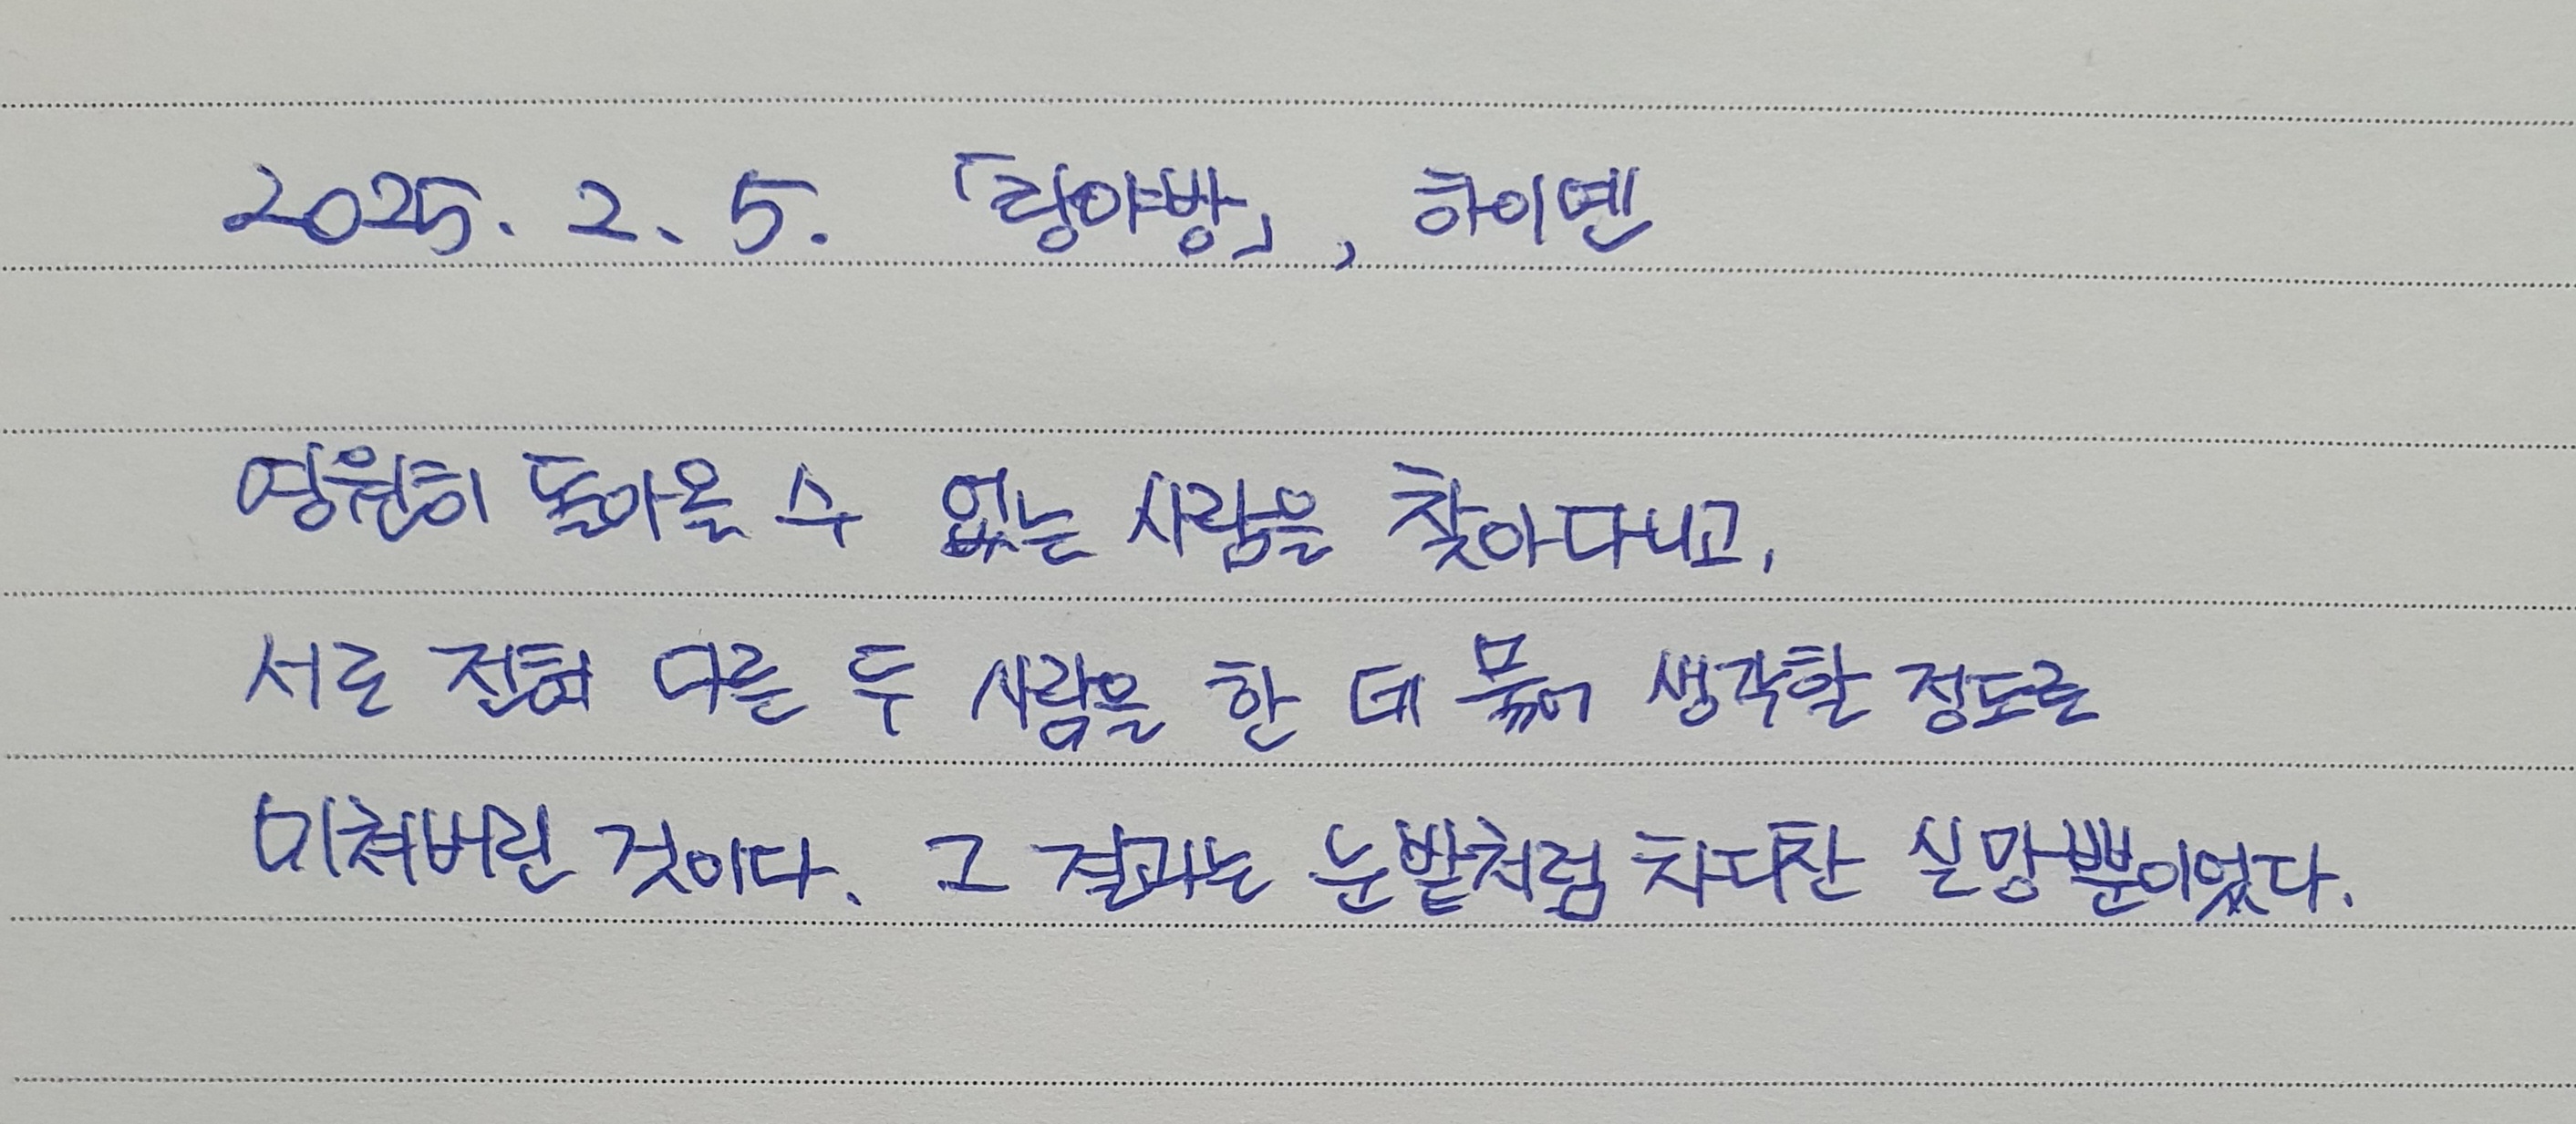 2025. 2. 5. 「랑야방」, 하이옌
영원히 돌아올 수 없는 사람을 찾아다니고,
서로 전혀 다른 두 사람을 한 데 묶어 생각할 정도로
미쳐버린 것이다. 그 결과는 눈밭처럼 차디찬 실망뿐이었다.